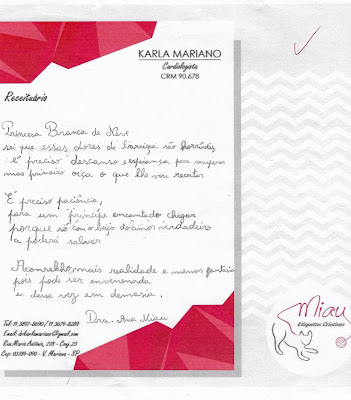 KARLA MARIANO
Cardiologista
CRM 90.678
Receituário
Princesa Branca de Neve
sei que essas dores de barriga são horríveis
é preciso descanso e esperança para recuperar
mas primeiro oiça o que lhe vou receitar
É preciso paciência,
para um príncipe encantado chegar
porque só com o beijo do amor verdadeiro
a poderá salvar
Aconselho mais realidade e menos fantasia
pois pode ser envenenada
e dessa vez em demasia.
Dra. Ana Miau
Tel: 11.3897-8690 / 11.3679-8289
Email: drkarlamariano@gmail.com
Rua Maria Antônia, 278 - Conj.23
Cep: 03189-090 - V. Mariana - SP
Miau
Etiquetas Criativas